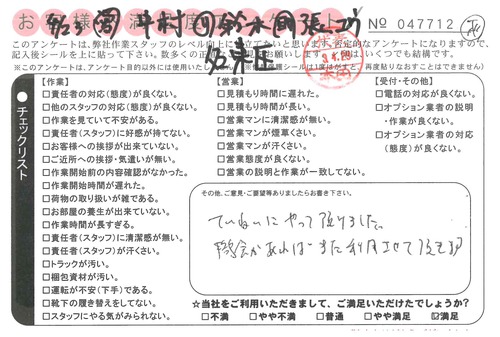 お客様満足度アンケート № 047712
鈴木
このアンケートは、弊社作業スタッフのレベル向上に役立てたいと思います。否定的なアンケートになりますので、
記入後シールを上に貼って下さい。
※このアンケートは、アンケート目的以外には使用いたしません。
チェックリスト
【作業】
□責任者の対応(態度)が良くない。
□他のスタッフの対応(態度)が良くない。
□作業を見ていて不安がある。
□責任者(スタッフ)に好感が持てない。
□お客様への挨拶が出来ていない。
□ご近所への挨拶・気遣いが無い。
□作業開始前の内容確認がなかった。
□作業開始時間が遅れた。
□荷物の取り扱いが雑である。
□お部屋の養生が出来ていない。
□作業時間が長すぎる。
□責任者(スタッフ)に清潔感が無い。
□責任者(スタッフ)が汗くさい。
□トラックが汚い。
□梱包資材が汚い。
□運転が不安(下手)である。
□靴下の履き替えをしてない。
□スタッフにやる気がみられない。
【営業】
□見積もり時間に遅れた。
□見積もり時間が長い。
□営業マンに清潔感が無い。
□営業マンが煙草くさい。
□営業マンが汗くさい。
□営業態度が良くない。
□営業の説明と作業が一致してない。
【受付・その他】
□電話の対応が良くない。
□オプション業者の説明
・作業が良くない。
□オプション業者の対応
(態度)が良くない。
その他、ご意見・ご要望等ありましたらお書き下さい。
ていねいにやって頂けました。
機会があればまた利用させて頂きます
☆当社をご利用いただきまして、ご満足いただけたでしょうか?
□不満 □やや不満 □普通 □やや満足 ☑満足